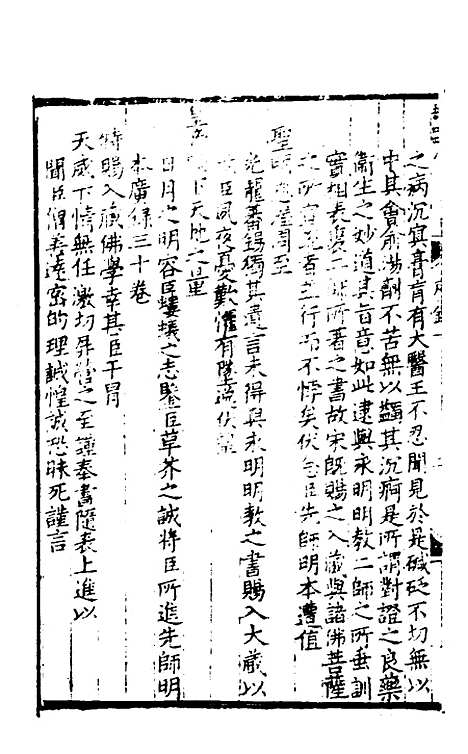 之病沉冥膏肓有大醫王不忍聞見於是砭不切無以
中其會俞湯劑不苦無以蠲其沉痾是所謂對證之良藥
衛生之妙道其旨意如此逮與永明明教二師之所垂訓
實相表裏二師所著之書故宋既賜之入藏與諸佛菩薩
之所言者並行而不悖矣伏念臣先師明本遭值
聖明
光寵蕃錫獨其遺言未得與永明明教之書賜入大藏以
臣夙夜憂歎懼有隱遁伏望
皇天地之量
日月之明容臣螻蟻之志鑒臣草芥之誠將臣所進先師明
本廣錄三十卷
特賜入藏佛學幸甚臣干冒
天威下情無任激切屏營之至謹奉書隨表上進以
聞臣僧善達密的理誠惶誠恐昧死謹言